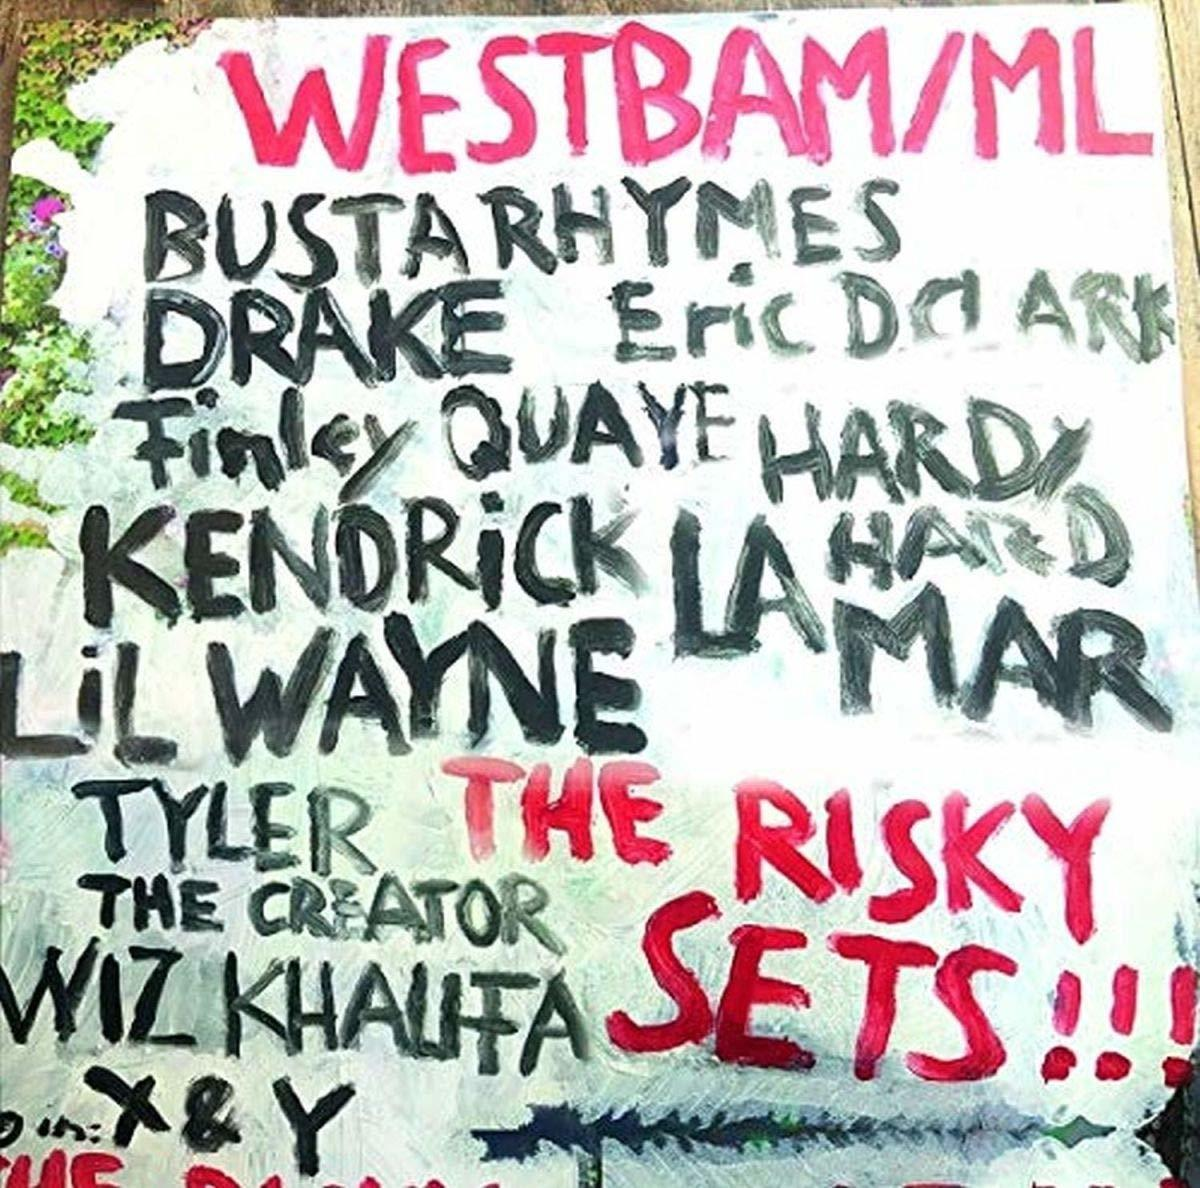 WESTBAM/ML
BUSTA RHYMES
DRAKE Eric D.ClARK
Finley QUAYE HARDy
KENDRiCK LA HARD
MAR
LiL WAYNE
TYLER THE RISKY
THE CREATOR
SETS!!!
WIZ KHALIFA
in: X & Y